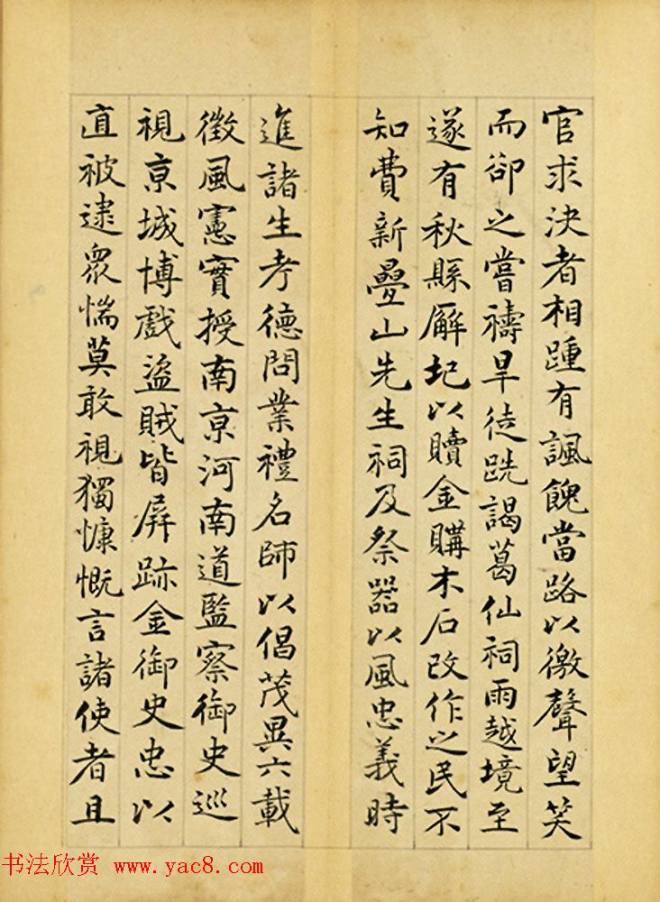 官求決者相踵有諷餽當路以徼聲望笑
而卻之嘗禱旱徒跣謁葛仙祠雨越境至
遂有秋縣廨圮以贖金購木石改作之民不
知費新疊山先生祠及祭器以風忠義時
進諸生考德問業禮名師以倡茂異六載
徵風憲實授南京河南道監察御史巡
視京城博戲盜賊皆屏跡金御史忠以
直被逮眾惴莫敢視獨慷慨言諸使者且
书法欣赏 www.yac8.com